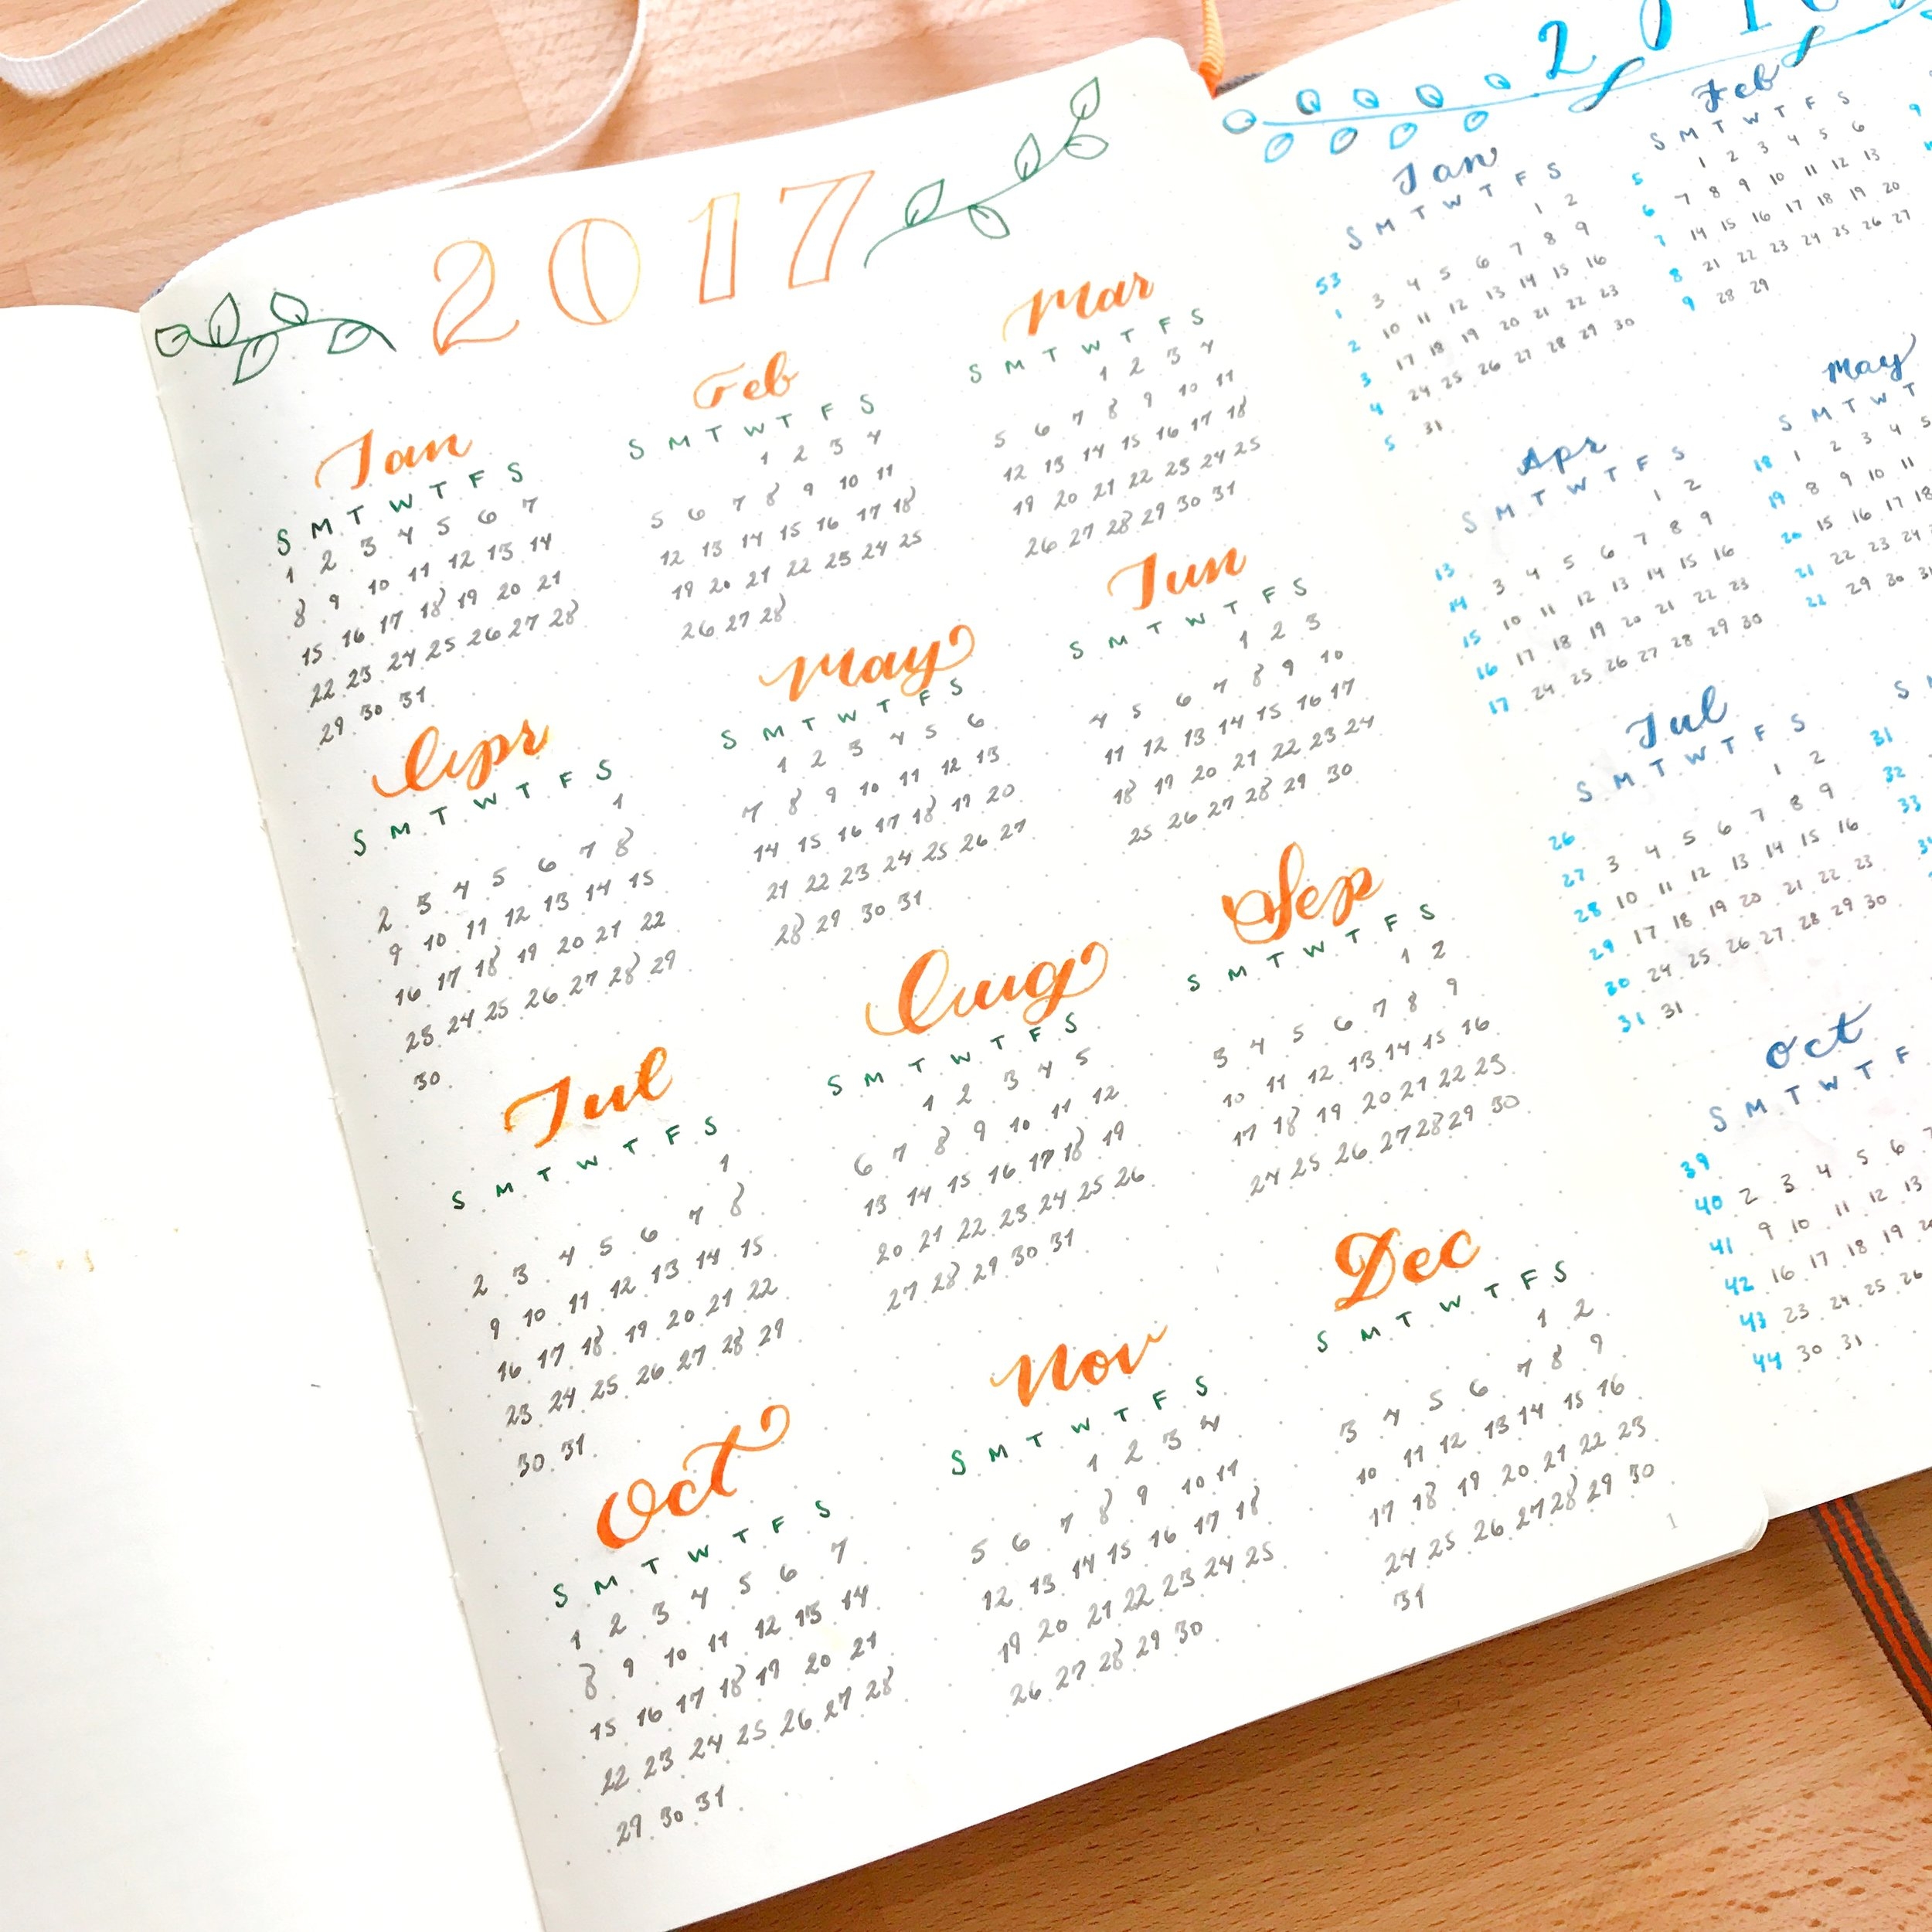 2017
Jan
S M T W T F S
1 2 3 4 5 6 7
8 9 10 11 12 13 14
15 16 17 18 19 20 21
22 23 24 25 26 27 28
29 30 31
Feb
S M T W T F S
1 2 3 4
5 6 7 8 9 10 11
12 13 14 15 16 17 18
19 20 21 22 23 24 25
26 27 28
Mar
S M T W T F S
1 2 3 4
5 6 7 8 9 10 11
12 13 14 15 16 17 18
19 20 21 22 23 24 25
26 27 28 29 30 31
Apr
S M T W T F S
1
2 3 4 5 6 7 8
9 10 11 12 13 14 15
16 17 18 19 20 21 22
23 24 25 26 27 28 29
30
May
S M T W T F S
1 2 3 4 5 6
7 8 9 10 11 12 13
14 15 16 17 18 19 20
21 22 23 24 25 26 27
28 29 30 31
Jun
S M T W T F S
1 2 3
4 5 6 7 8 9 10
11 12 13 14 15 16 17
18 19 20 21 22 23 24
25 26 27 28 29 30
Jul
S M T W T F S
1
2 3 4 5 6 7 8
9 10 11 12 13 14 15
16 17 18 19 20 21 22
23 24 25 26 27 28 29
30 31
Aug
S M T W T F S
1 2 3 4 5
6 7 8 9 10 11 12
13 14 15 16 17 18 19
20 21 22 23 24 25 26
27 28 29 30 31
Sep
S M T W T F S
1 2
3 4 5 6 7 8 9
10 11 12 13 14 15 16
17 18 19 20 21 22 23
24 25 26 27 28 29 30
Oct
S M T W T F S
1 2 3 4 5 6 7
8 9 10 11 12 13 14
15 16 17 18 19 20 21
22 23 24 25 26 27 28
29 30 31
Nov
S M T W T F S
1 2 3 4
5 6 7 8 9 10 11
12 13 14 15 16 17 18
19 20 21 22 23 24 25
26 27 28 29 30
Dec
S M T W T F S
1 2
3 4 5 6 7 8 9
10 11 12 13 14 15 16
17 18 19 20 21 22 23
24 25 26 27 28 29 30
31
1
Jan
S M T W T F S
53 1 2
1 3 4 5 6 7 8 9
2 10 11 12 13 14 15 16
3 17 18 19 20 21 22 23
4 24 25 26 27 28 29 30
5 31
Feb
S M T W T F S
5 1 2 3 4 5 6
6 7 8 9 10 11 12 13
7 14 15 16 17 18 19 20
8 21 22 23 24 25 26 27
9 28 29
Apr
S M T W T F S
13 1 2
14 3 4 5 6 7 8 9
15 10 11 12 13 14 15 16
16 17 18 19 20 21 22 23
17 24 25 26 27 28 29 30
May
S M T W T
18 1 2 3 4 5
19 8 9 10 11
20 15 16 17 18
21 22 23 24
22 29 30 31
Jul
S M T W T F S
26 1 2
27 3 4 5 6 7 8 9
28 10 11 12 13 14 15 16
29 17 18 19 20 21 22 23
30 24 25 26 27 28 29 30
31 31
S
31
32
33
Oct
S M T W T F
39
40 2 3 4 5 6 7
41 9 10 11 12 13
42 16 17 18 19
43 23 24 25 26
44 30 31